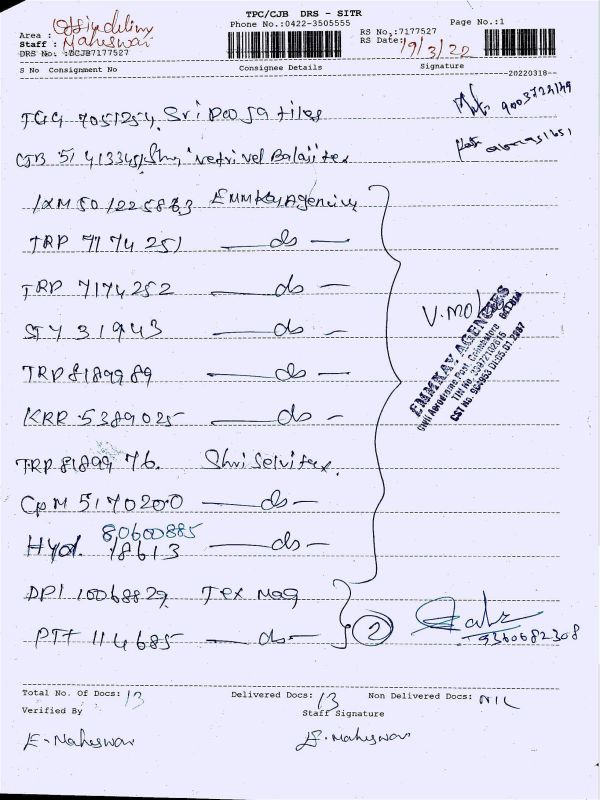 TPC/CJB DRS - SITR
Phone No.:0422-3505555
Page No.:1
Area :
Staff : Maheswari
DRS No: :BCJB7177527
RS No.:7177527
RS Date: 19/3/22
S No Consignment No Consignee Details Signature
--20220318--
TGG 7051254 Sri Pooja tiles 9003724149
CJB 5141334 Vetrivel Balaji tex
IXM 501225883 Emmkay Agencies
TRP 7174251 — do —
TRP 7174252 — do —
STY 31943 — do —
V.Mo
TRP 8189989 — do —
KRR 5389025 — do —
EMMKAY AGENCIES
Civil Aerodrome Post, Coimbatore
TRP 8189976. Shri Selvi tex.
CPM 5170200 — do —
80600885
Hyd. 18613 — do —
DPI 10068829 Tex mag
PTT 114685 — do — 2
9360682308
Total No. Of Docs: 13 Delivered Docs: 13 Non Delivered Docs: NIL
Verified By Staff Signature
E. Maheswari E. Maheswari